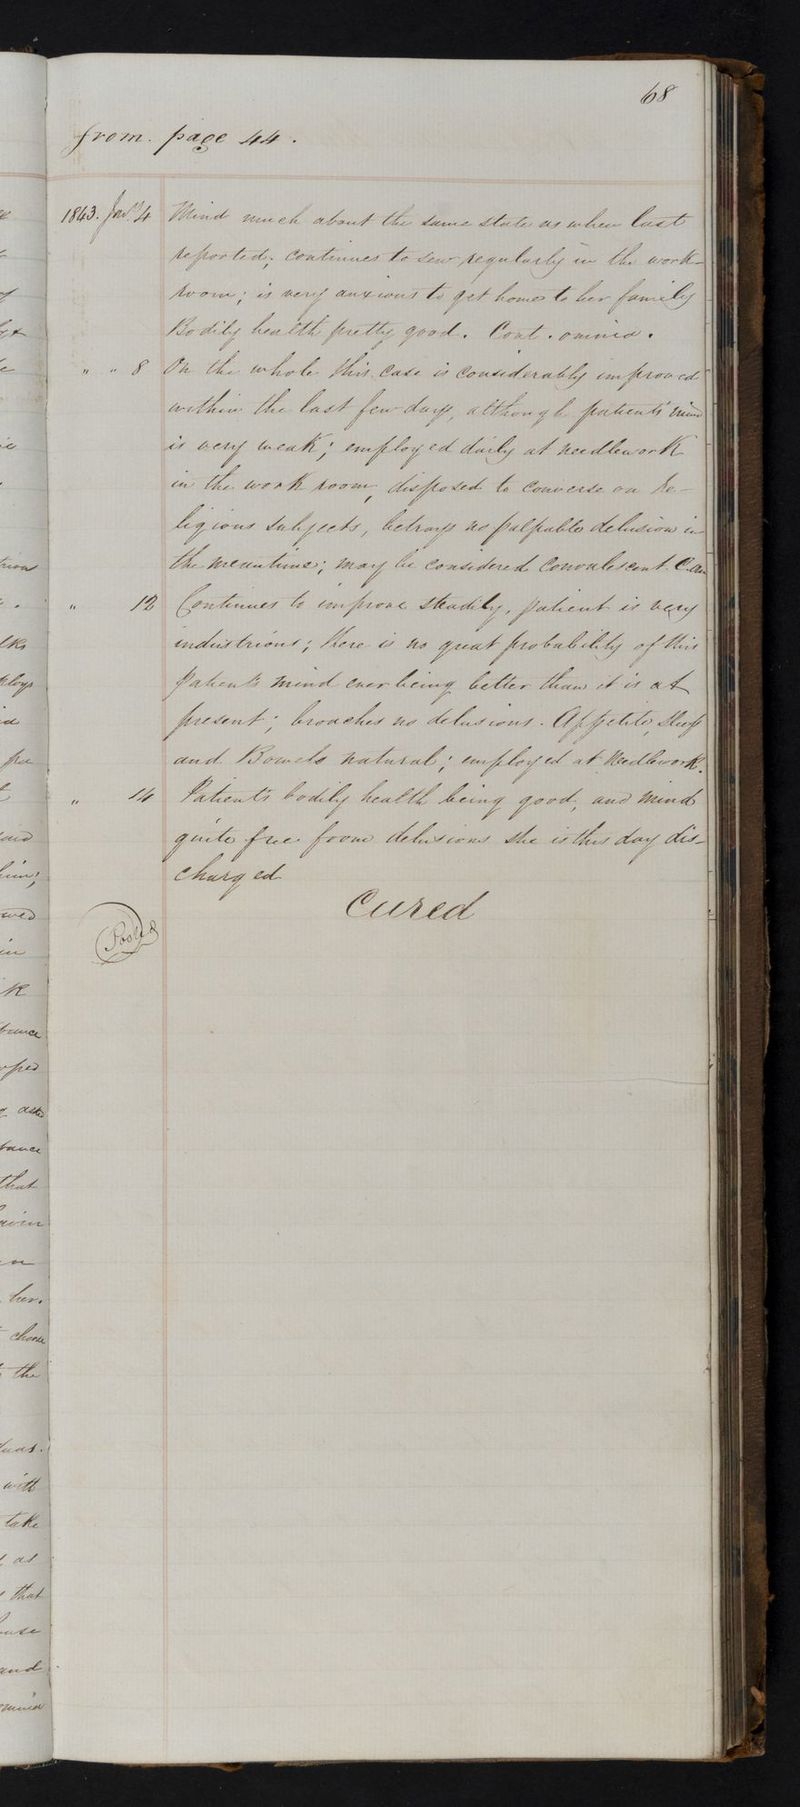 68
from. page 44.
1843. Jany 4 Mind much about the same state as when last
reported; continues to sew regularly in the work-
room; is very anxious to get home to her family
Bodily health pretty good. Cont. omnia.
" " 8 On the whole this case is considerably improved
within the last few days, although patients mind
is very weak; employed daily at needlework
in the work room, disposed to converse on re-
ligious subjects, betrays no palpable delusion in
the meantime; may be considered convalescent.
" 12 Continues to improve steadily, patient is very
industrious; there is no great probability of this
patients mind ever being better than it is at
present; broaches no delusions. Appetite, sleep
and Bowels natural; employed at Needlework.
" 14 Patients bodily health being good, and mind
quite free from delusions she is this day dis-
charged
Cured